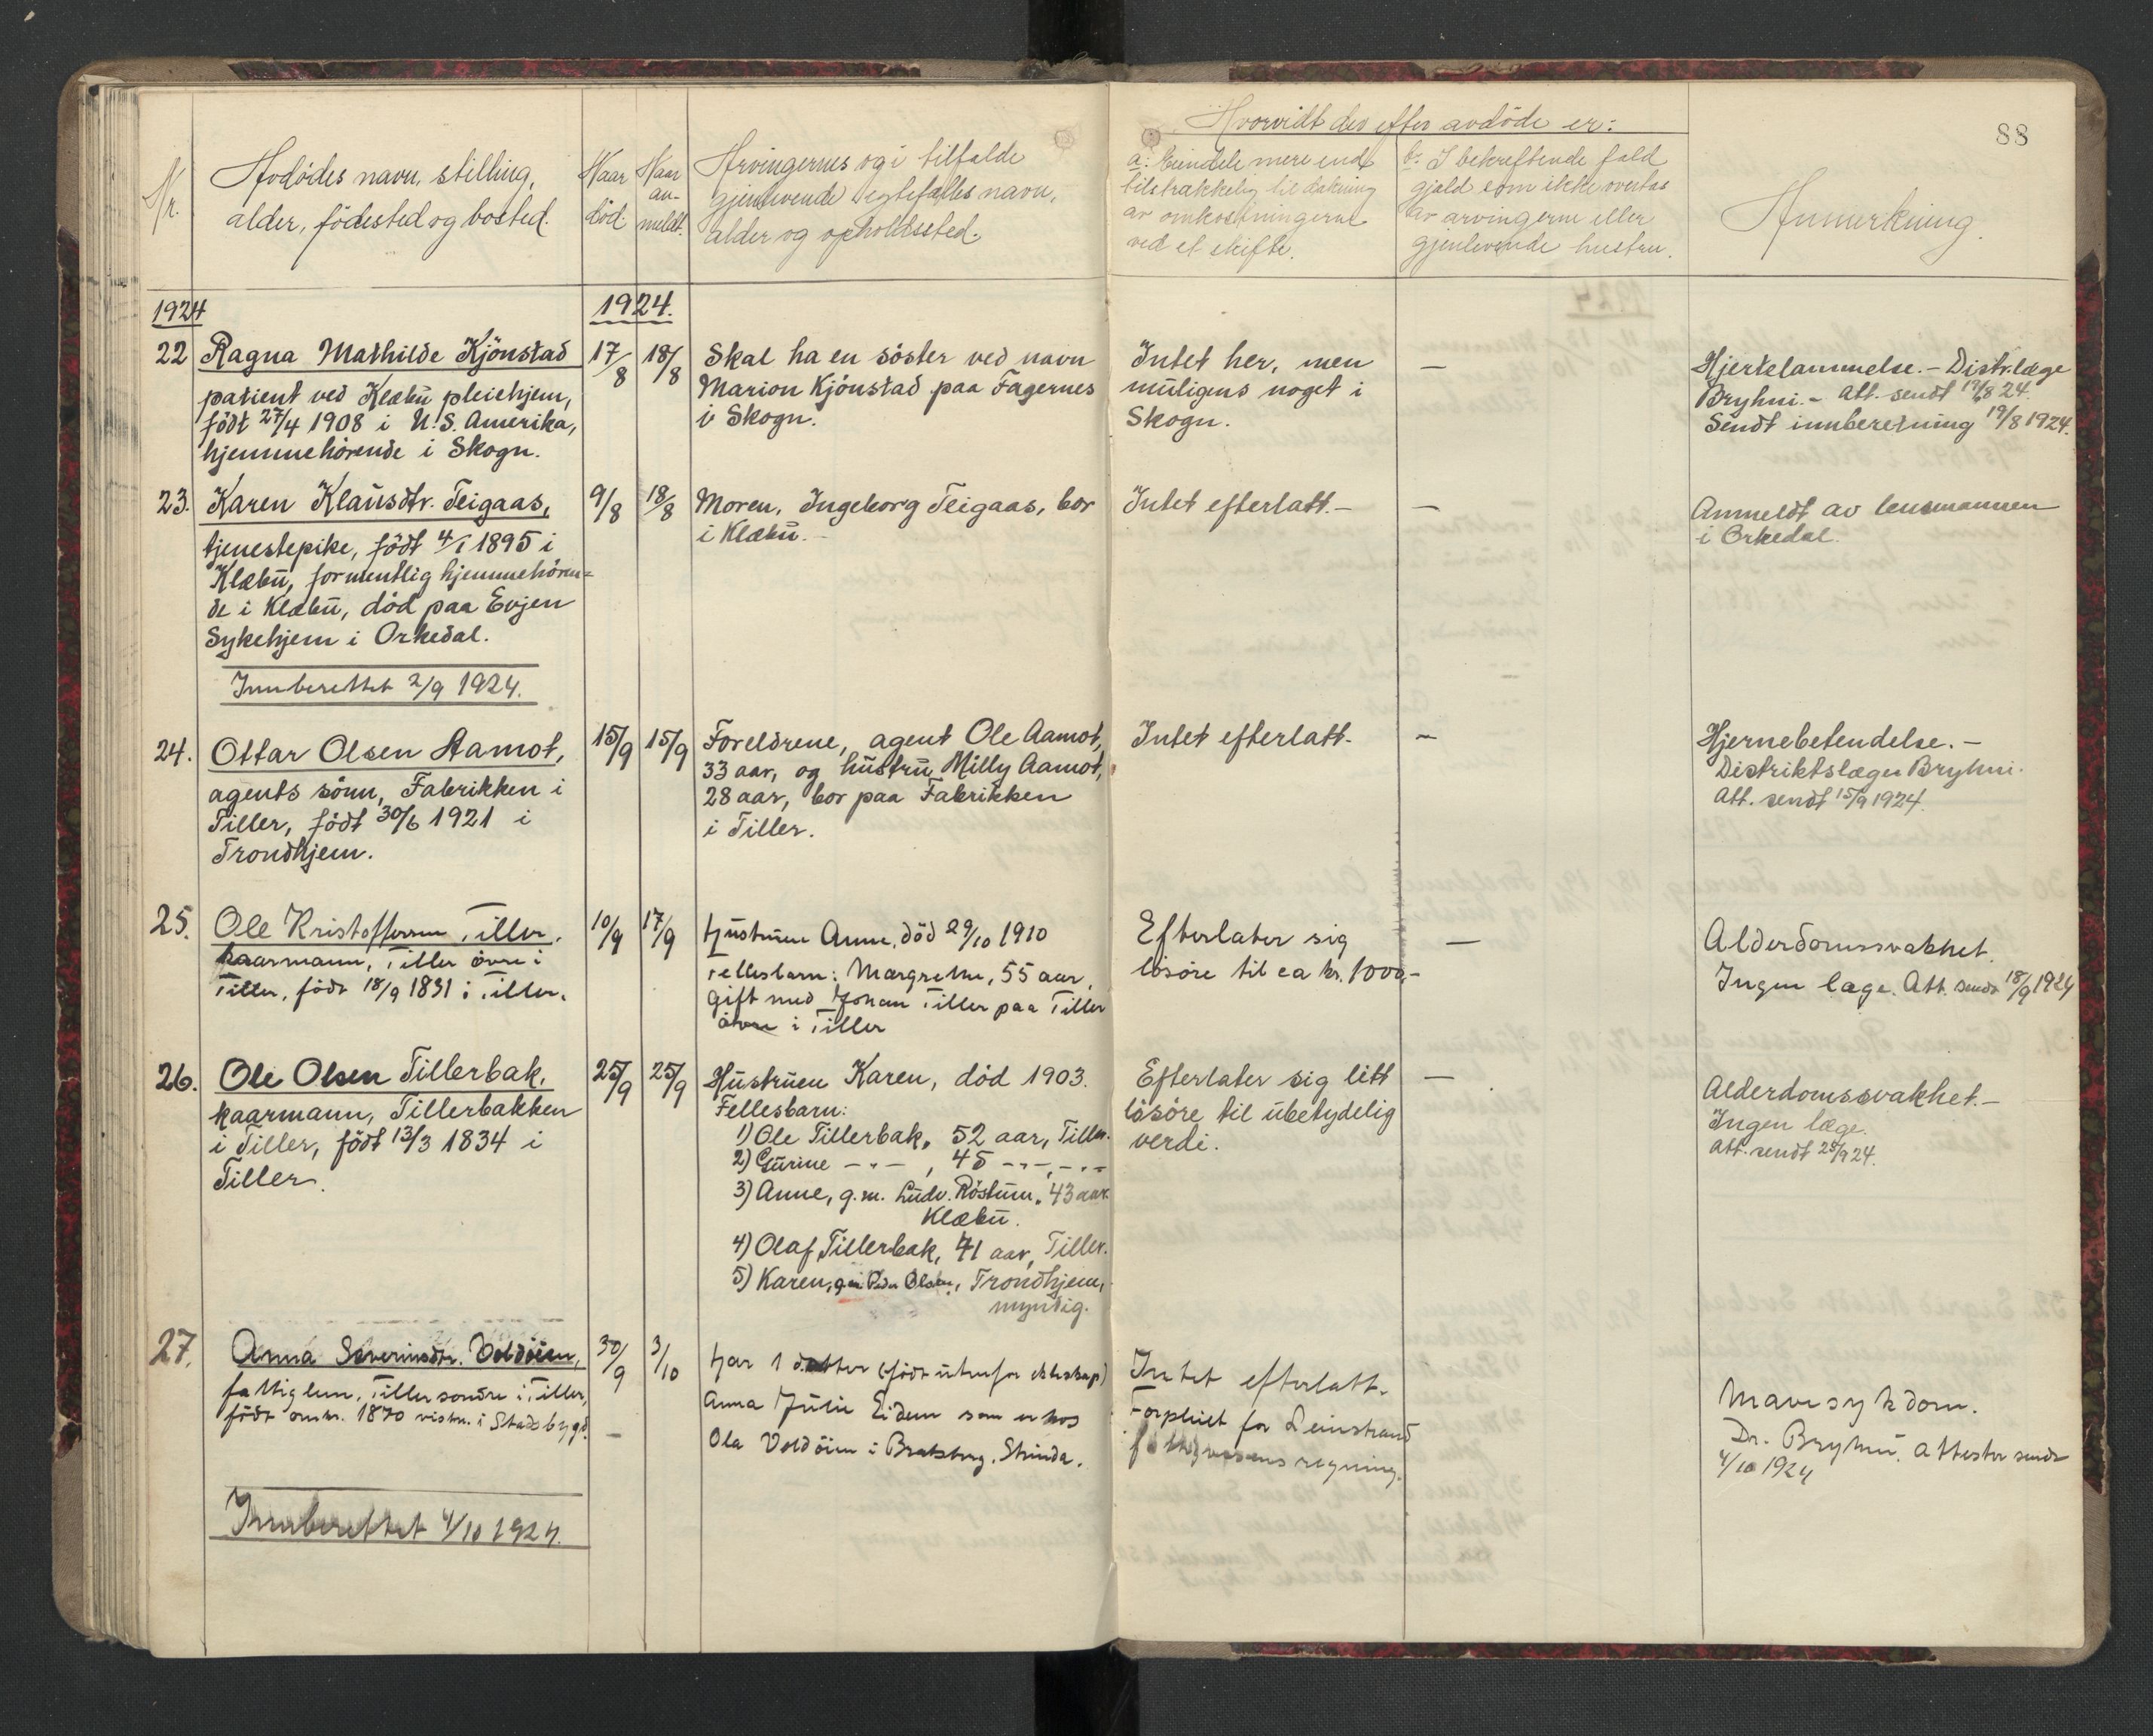 88
Hvorvidt der efter avdöde er:
Nr.
Avdödes navn, stilling,
alder, födested og bosted.
Naar
död.
Naar
an-
meldt.
Arvingernes og i tilfælde
gjenlevende egtefælles navn,
alder og opholdssted.
a: Eiendele mere end
tilstrækkelig til dækning
av omkostningerne
ved et skifte.
b: I bekreftende fald
gjæld som ikke overtas
av arvingerne eller
gjenlevende hustru.
Anmerkning.
1924
1924.
22 Ragna Mathilde Kjönstad
patient ved Klæbu pleiehjem,
födt 27/4 1908 i U.S. Amerika,
hjemmehörende i Skogn.
17/8
18/8
Skal ha en söster ved navn
Marion Kjönstad paa Fagernes
i Skogn.
Intet her, men
muligens noget i
Skogn.
—
Hjertelammelse. – Distr.læge
Bryhni. – Att. sendt 19/8 24.
Sendt innberetning 19/8 1924.
23. Karen Klausdtr. Teigaas,
tjenestepike, födt 4/1 1895 i
Klæbu, formentlig hjemmehören=
de i Klæbu, död paa Evjen
Sykehjem i Orkedal.
9/8
18/8
Moren, Ingeborg Teigaas, bor
i Klæbu. –
Intet efterlatt. –
—
Anmeldt av lensmannen
i Orkedal.
Innberettet 2/9 1924.
24. Ottar Olsen Aamot,
agents sönn, Fabrikken i
Tiller, födt 30/6 1921 i
Trondhjem.
15/9
15/9
Foreldrene, agent Ole Aamot,
33 aar, og hustru Milly Aamot,
28 aar, bor paa Fabrikken
i Tiller.
Intet efterlatt.
—
Hjernebetendelse. –
Distriktslæge Bryhni.
Att. sendt 15/9 1924.
25. Ole Kristoffersen Tiller,
kaarmann, Tiller övre i
Tiller, födt 18/9 1831 i Tiller.
10/9
17/9
Hustruen Anne, död 29/10 1910
Fellesbarn: Margrethe, 55 aar,
gift med Johan Tiller paa Tiller
övre i Tiller
Efterlater sig
lösöre til ca kr. 1000,-
—
Alderdomssvakhet.
Ingen læge. Att. sendt 18/9 1924
26. Ole Olsen Tillerbak,
kaarmann, Tillerbakken
i Tiller, födt 13/3 1834 i
Tiller.
25/9
25/9
Hustruen Karen, död 1903.
Fellesbarn:
1) Ole Tillerbak, 52 aar, Tiller.
2) Gurine –"– , 45 –"–, –"–
3) Anne, g.m. Ludv. Röstum, 43 aar.
Klæbu.
4) Olaf Tillerbak, 41 aar, Tiller.
5) Karen, g.m. Peder Olsen, Trondhjem,
myndig.
Efterlater sig litt
lösöre til ubetydelig
verdi.
—
Alderdomssvakhet. –
Ingen læge.
Att. sendt 25/9 24.
27. Anna Severinsdtr. Voldöien,
fattiglem, Tiller söndre i Tiller,
födt omkr. 1870 vistn. i Stadsbygd.
30/9
3/10
Har 1 datter (födt utenfor ekteskap)
Anna Julie Eidem som er hos
Ola Voldöien i Bratsberg, Strinda.
Intet efterlatt.
Forpleiet for Leinstrand
fattigvesens regning.
Mavesykdom.
Dr. Bryhni. Attester sendt
4/10 1924
Innberettet 4/10 1924.